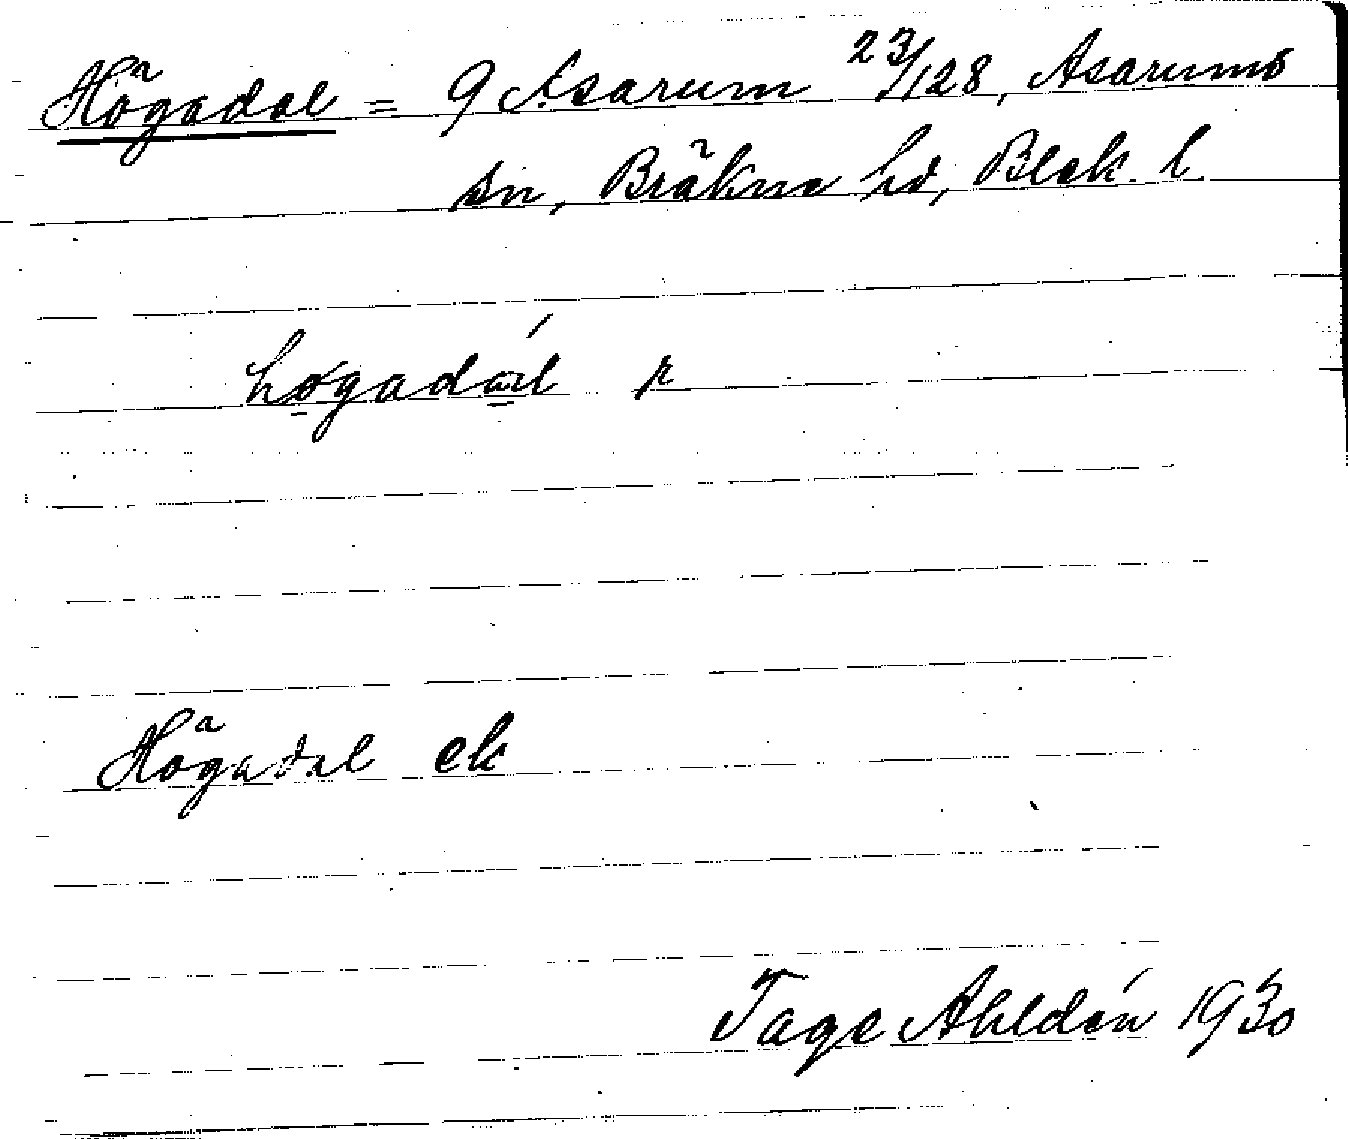 Högadal = 9 Asarum 23/128, Asarums
sn, Bräkne hd, Blek. l.
høgadál p
Högadal ek
Tage Ahldén 1930